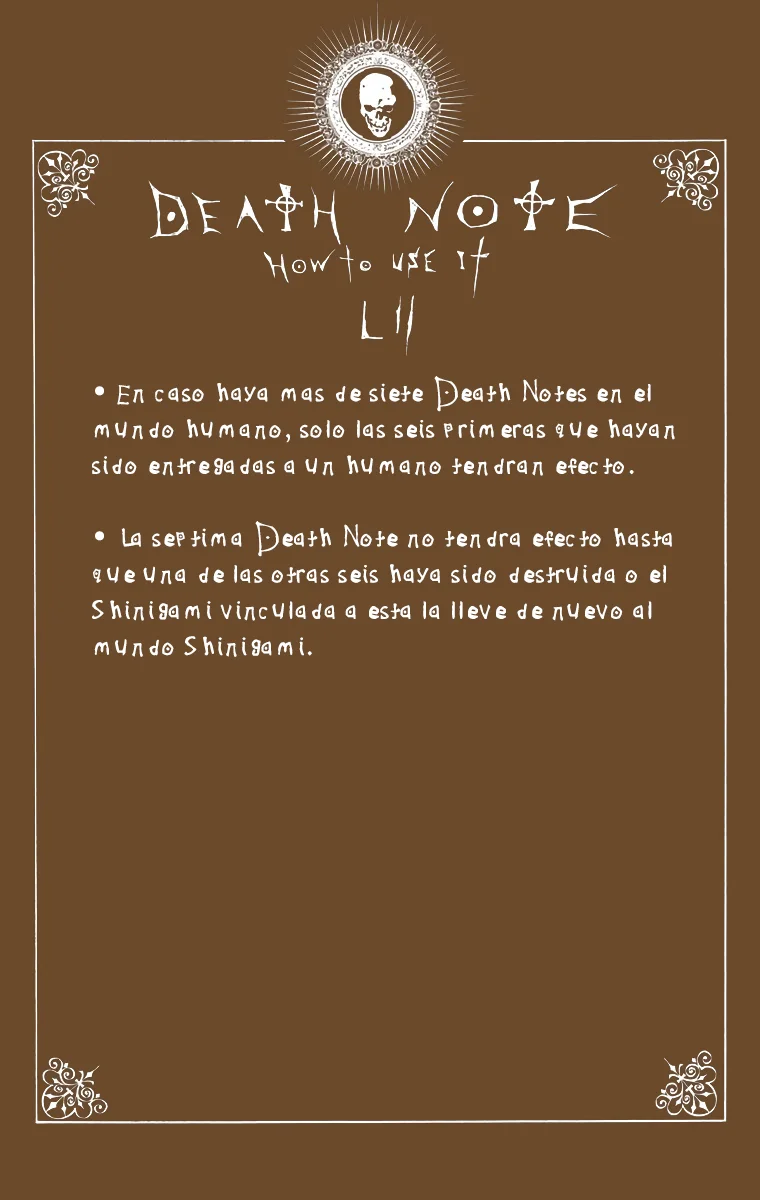 DEATH NOTE
HOW to USE It
LII
• En caso haya mas de siete Death Notes en el
mundo humano, solo las seis primeras que hayan
sido entregadas a un humano tendran efecto.
• La septima Death Note no tendra efecto hasta
que una de las otras seis haya sido destruida o el
Shinigami vinculada a esta la lleve de nuevo al
mundo Shinigami.